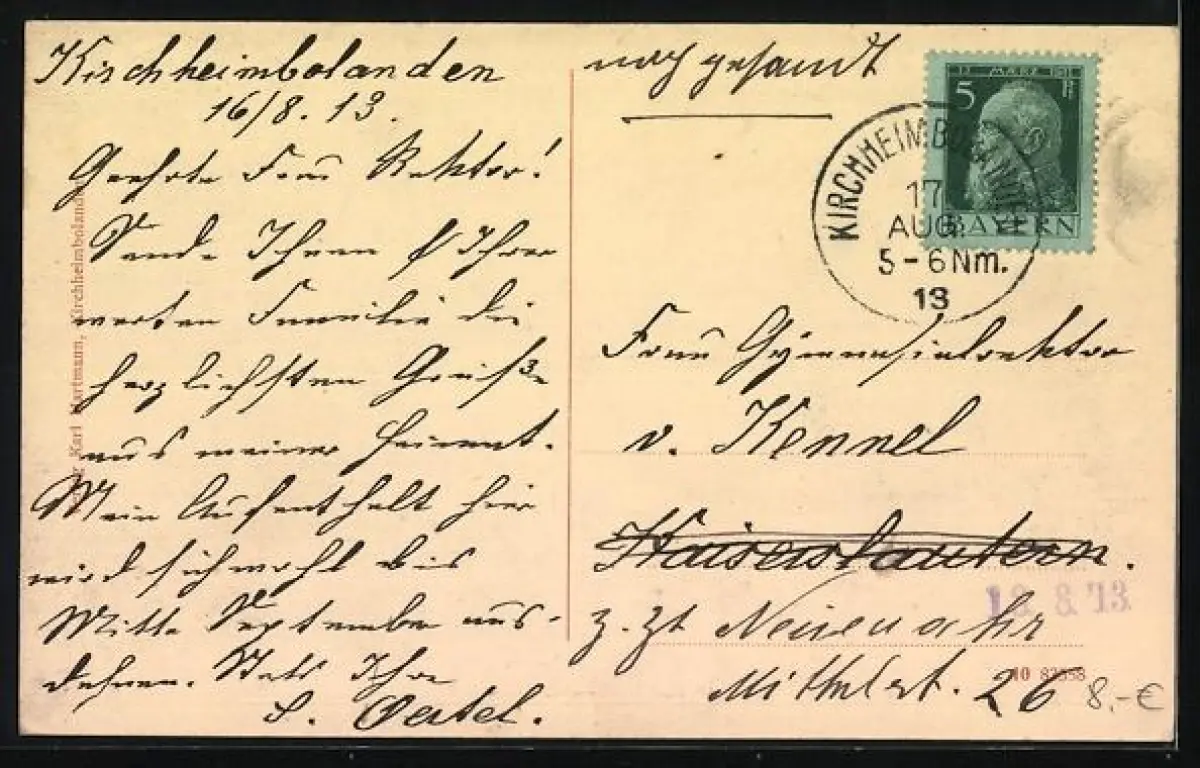 Kirchheimbolanden
16/8. 13.
Geehrte Frau Rektor!
Sende Ihnen & Ihrer
werten Familie die
herzlichsten Grüße
aus meiner Heimat.
Mein Aufenthalt hier
wird sich wohl bis
Mitte September aus-
dehnen. Stets Ihre
Oertel.
Karl Hartmann, Kirchheimbolanden
nachgesandt
12. MÄRZ 1911
5 Pf
BAYERN
KIRCHHEIMBOLANDEN
17
AUG.
5-6Nm.
13
Frau Gymnasialrektor
v. Kennel
Kaiserslautern.
8 13
z. Zt Neuenahr
Mittelst. 26
8.-€